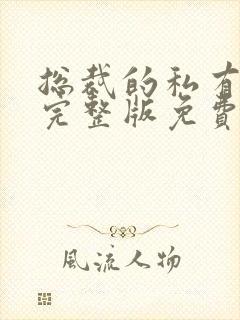 总裁的私有
完整版免費
風流人物